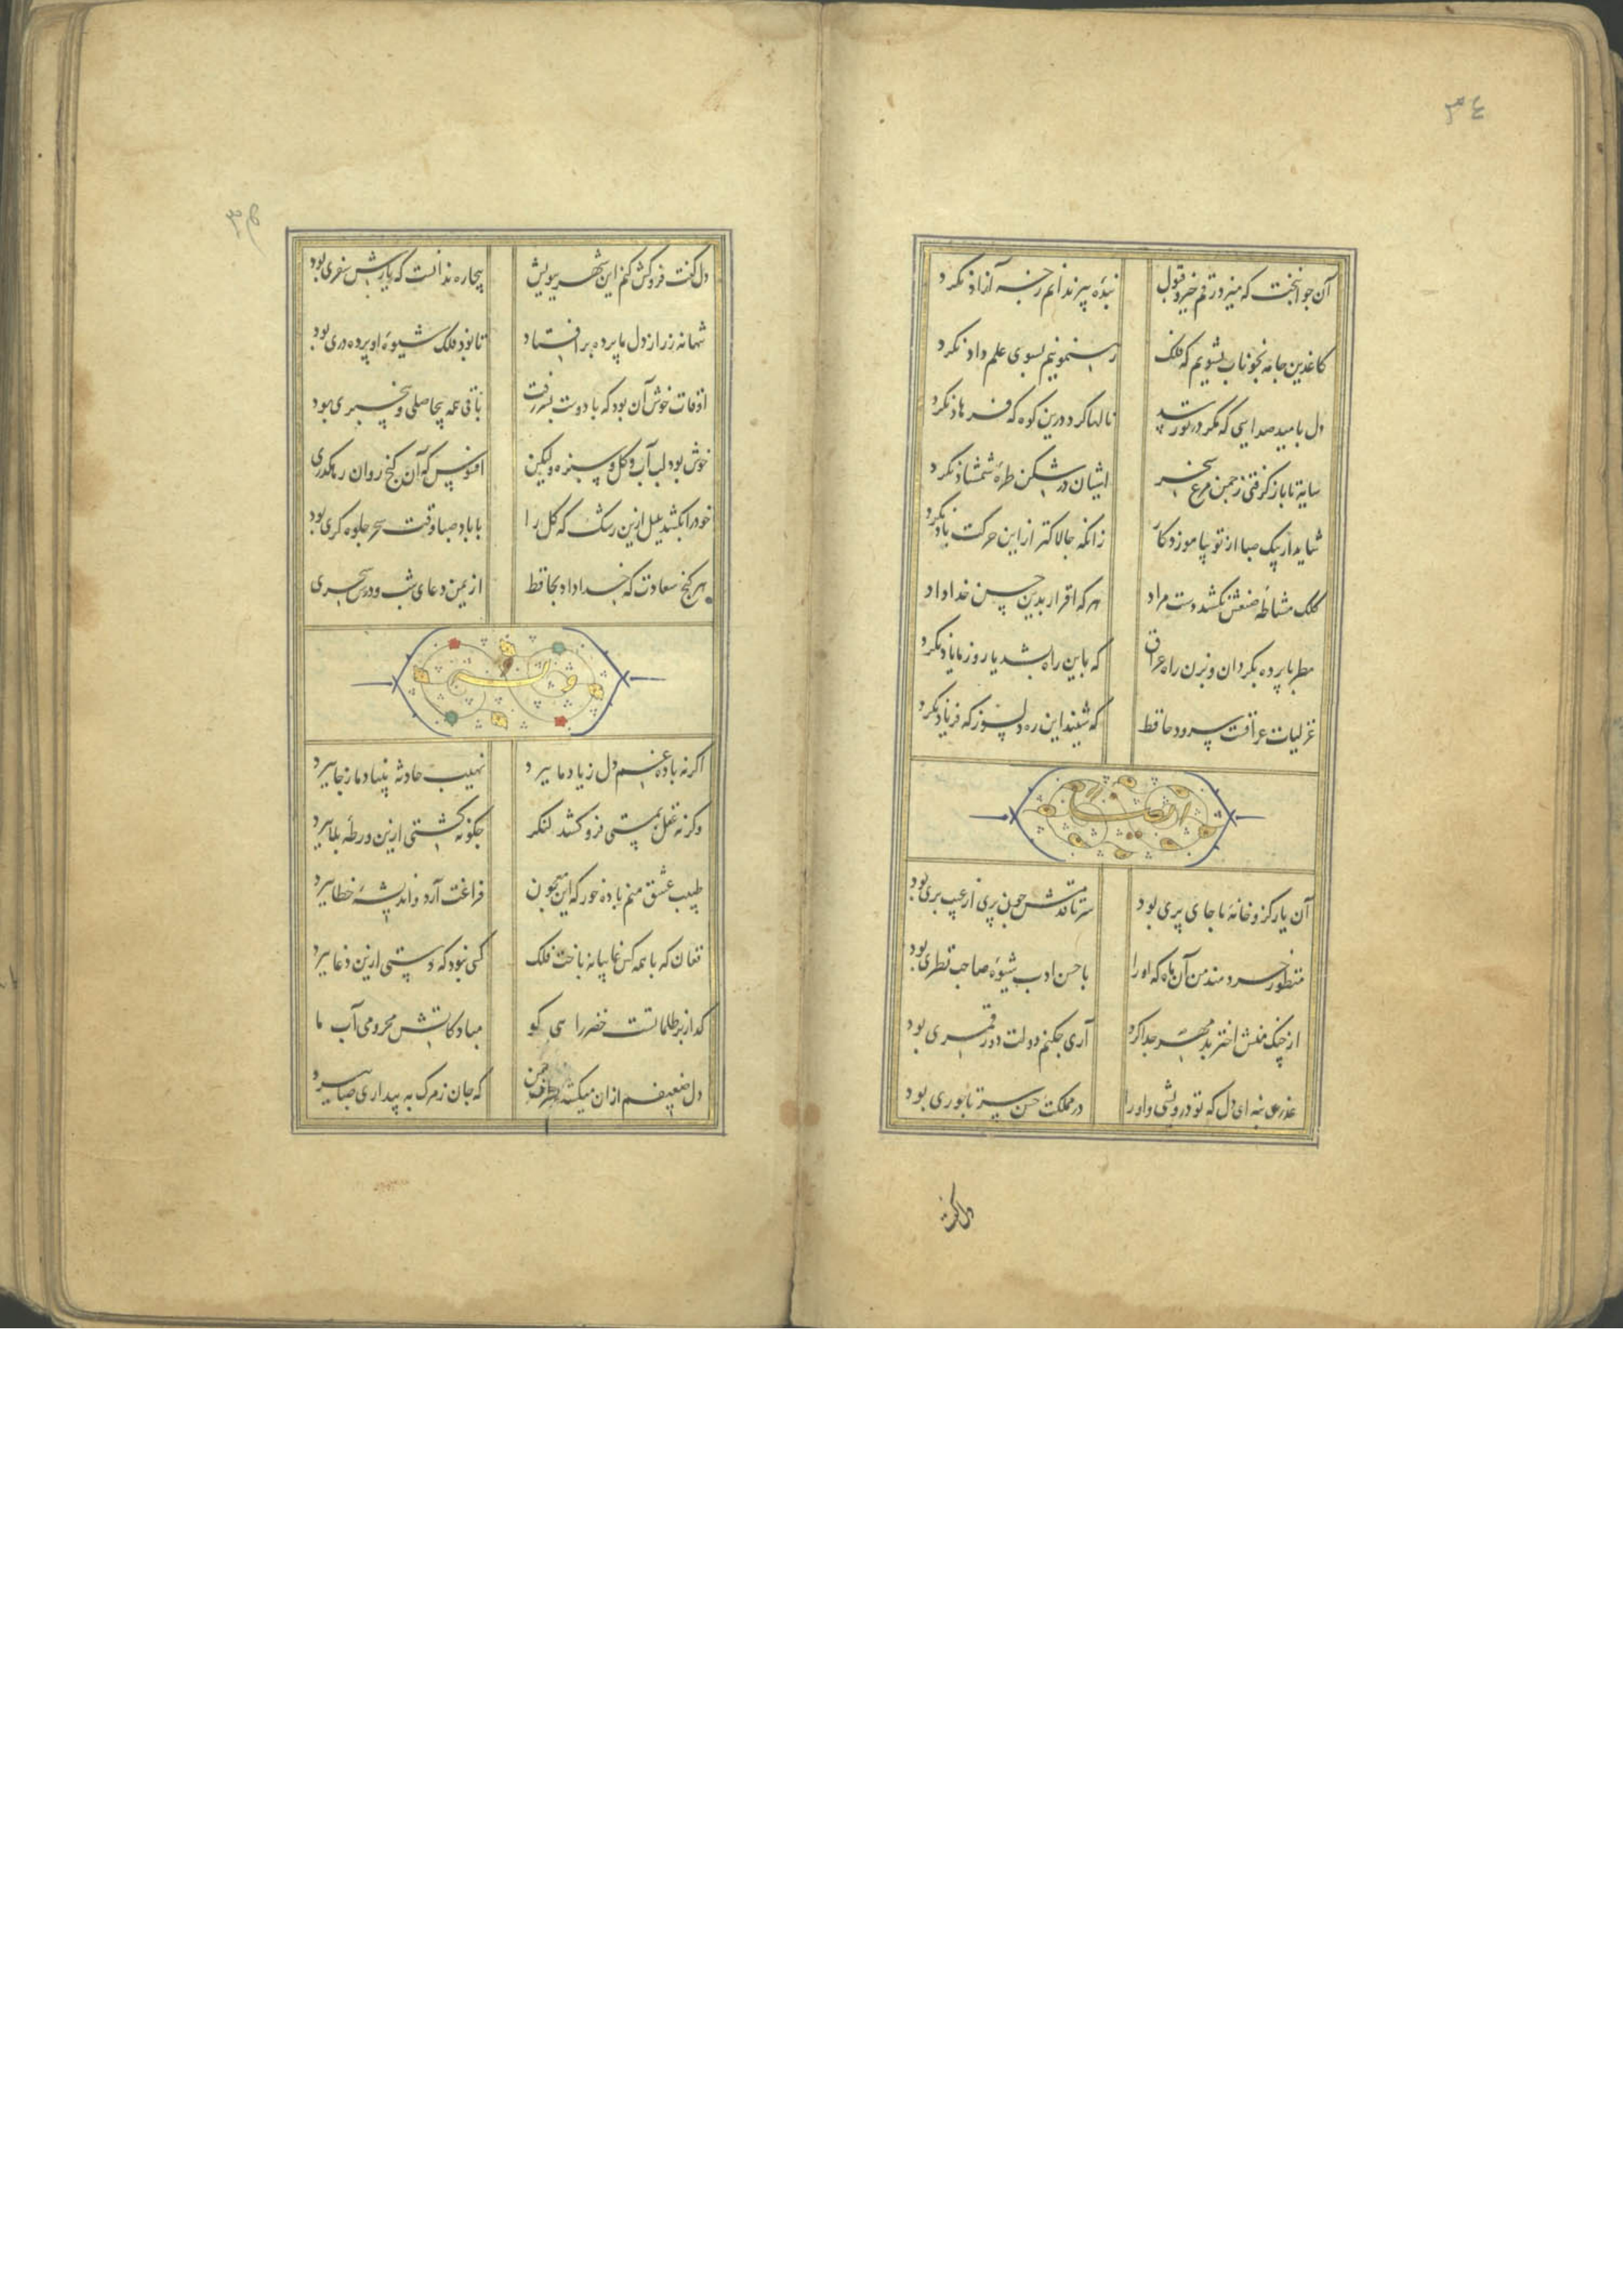 ٣٤
آن جوانبخت که میزد رقم خیر و قبول بنده پیر ندانم ز چه آزاد نکرد
کاغذین جامه بخوناب بشویم که فلک رهنمونیم بسوی علم داد نکرد
دل بامید صدایی که مکر در تو رسد نالها کرد درین کوه که فرهاد نکرد
سایه تا باز کرفتی ز چمن مرغ سحر اشیان در شکن طره شمشاد نکرد
شاید ار پیک صبا از تو بیاموزد کار زانکه جالاکتر از این حرکت باد نکرد
کلک مشاطه صنعش نکشد دست مراد هر که اقرار بدین حسن خداداد نکرد
مطربا پرده بکردان و بزن راه عراق که باین راه بشد یار و ز ما یاد نکرد
غزلیات عراقیست سرود حافظ که شنید این ره دلسوز که فریاد نکرد
ایضا
آن یار کزو خانه ما جای پری بود سر تا قدمش جون پری از عیب بری بود
منظور خردمند من آن ماه که او را با حسن ادب شیوه صاحب نظری بود
از جنک منش اختر بدمهر جدا کرد آری جکنم دولت دور قمری بود
عذری بنه ای دل که تو درویشی و او را در مملکت حسن سر تاجوری بود
دل کفت
دل کفت فروکش کنم این شهر ببویش بیجاره ندانست که یارش سفری بود
تنها نه ز راز دل ما پرده بر افتاد تا بود فلک شیوه او پرده دری بود
اوقات خوش آن بود که با دوست بسر رفت باقی همه بیحاصلی و بیخبری بود
خوش بود لب آب و کل و سبزه ولیکن افسوس که آن کنج روان رهکذری
خود را بکشد بلبل ازین رشک که کل را با باد صبا وقت سحر جلوه کری بود
هر کنج سعادت که خدا داد بحافظ از یمن دعای شب و درس سحری
وله
اکر نه باده غم دل ز یاد ما ببرد نهیب حادثه بنیاد ما ز جا ببرد
وکر نه عقل بمستی فرو کشد لنکر جکونه کشتی ازین ورطه بلا ببرد
طبیب عشق منم باده خور که این معجون فراغت آرد و اندیشه خطا ببرد
فغان که با همه کس غایبانه باخت فلک کسی نبود که دستی ازین دغا ببرد
کذار بر ظلماتست خضر راهی کو مباد کاتش محرومی آب ما
دل ضعیفم از ان میکشد بطرف چمن که جان ز مرک به بیداری صبا ببرد